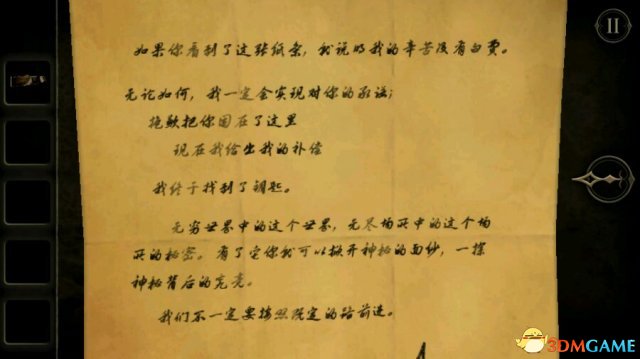 如果你看到了这张纸条，就说明我的辛苦没有白费。
无论如何，我一定会实现对你的承诺；
抱歉把你困在了这里
现在我给出我的补偿
我终于找到了钥匙。
无穷世界中的这个世界，无尽场所中的这个场
所的秘密。有了它你就可以掀开神秘的面纱，一探
神秘背后的光亮。
我们不一定要按照既定的路前进。
A
3DMGAME